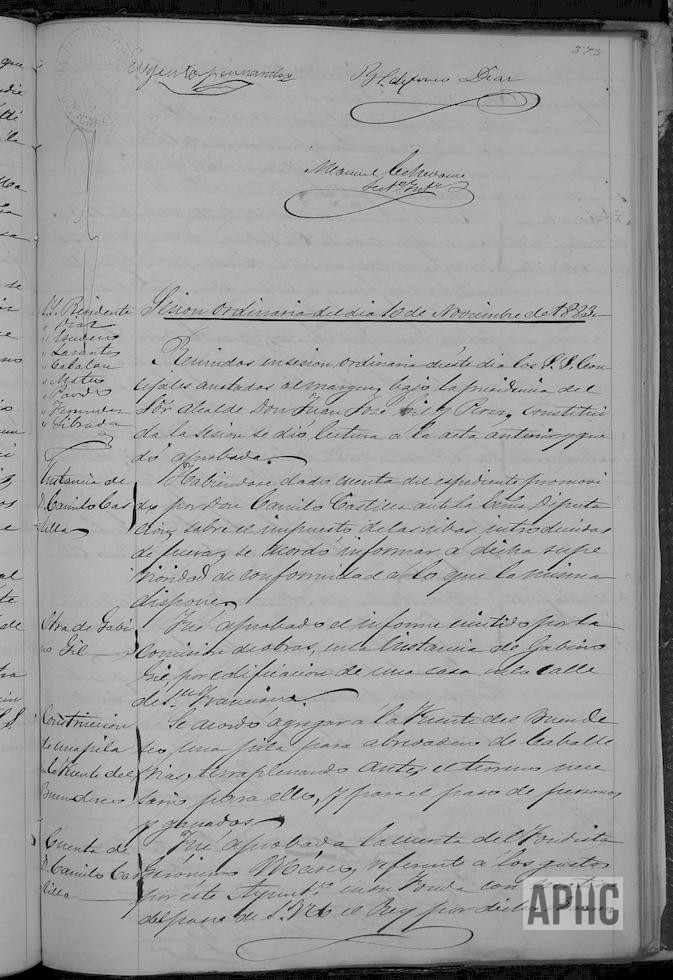 373
Ildefonso Diaz
Manuel
Sesion ordinaria del dia 16 de Noviembre de 1883.
S.S. Presidente
" Diaz
" Escudero
" Catalan
" Mateo
" Pardo
" Fernandez
" Librada
Reunidos en sesion ordinaria de este dia los S.S. Con
cejales anotados al margen, bajo la presidencia del
Sor. Alcalde Don Juan José Gil y Perez, constitui
da la sesion se dió lectura a la acta anterior y que
dó aprobada.
Instancia de
D. Camilo Cas
tilla
Habiendose dado cuenta del espediente promovi
do por Don Camilo Castilla ante la Exma. Diputa
cion, sobre el impuesto de las ubas introducidas
de fuera, se acordo informar a dicha supe
rioridad de conformidad a lo que la misma
dispone.
Otra de Gabi
no Gil
Fué aprobado el informe emitido por la
Comision de obras, en la instancia de Gabino
Gil, por edificacion de una casa en la calle
de Sn. Francisco.
Construccion
de una pila
en la Fuente del
Buen deseo
Se acordo agregar á la Fuente del Buen de
seo, una pila para abrevadero de Caballe
rias, terraplenando antes el terreno nece
sario para ello, y para el paso de personas
y ganados.
Cuenta de
D. Camilo Cas
tilla
Fué aprobada la cuenta del Fondista
Gerónimo Máseo, referente a los gastos
por este Ayuntto. en su Fonda con
del paso de S. M. el Rey por dicha
APHC